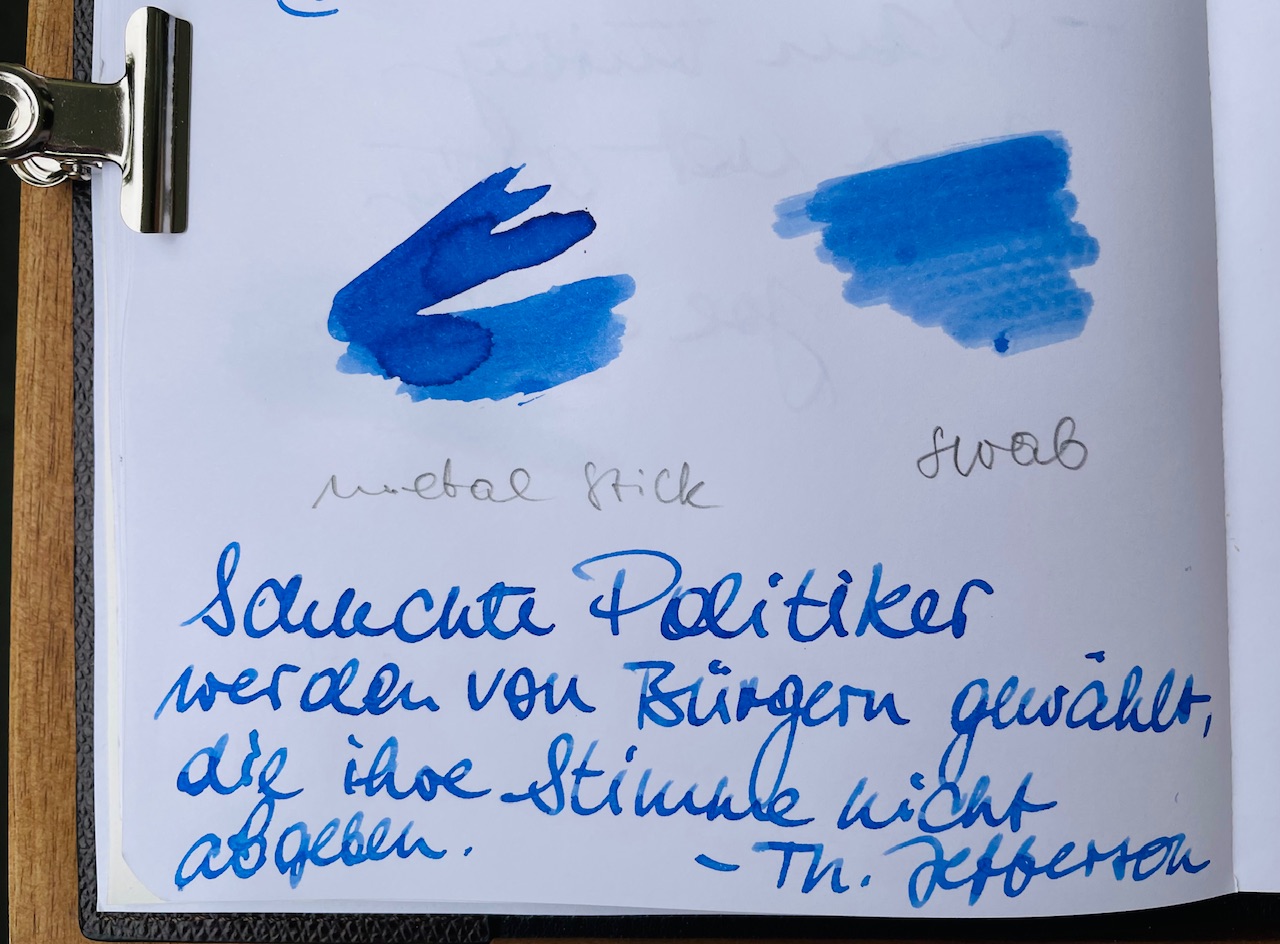 metal stick
swab
Schlechte Politiker
werden von Bürgern gewählt,
die ihre Stimme nicht
abgeben.
- Th. Jefferson